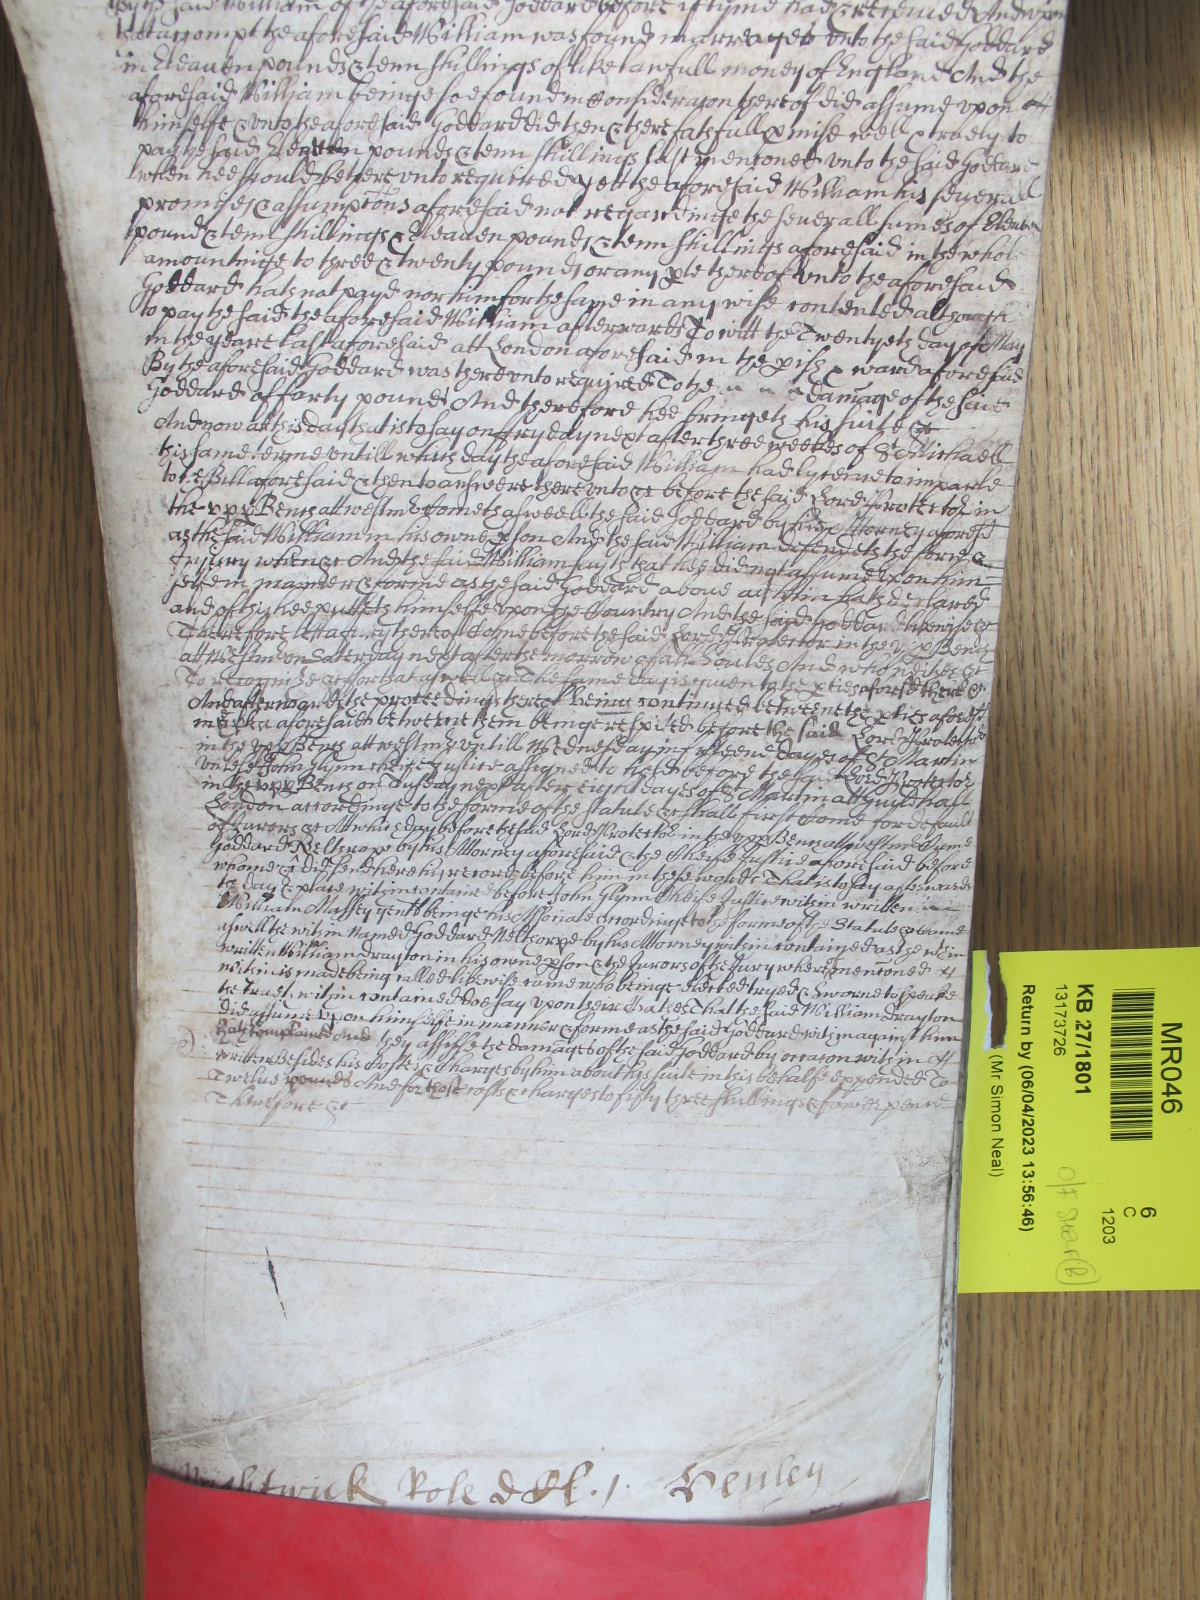 By the said William of the aforesaid Goddard before tyme had & received And upon
that accompt the aforesaid William was found in arreages unto the said Goddard
in Eleaven pounds & tenn shillings of like lawfull money of England And the
aforesaid William beinge soe found in Consideracon thereof did assume upon
himselfe & unto the aforesaid Goddard did then & there faithfully pmise well & truely to
pay the said Eleaven pounds & tenn shillings last mencioned unto the said Goddard
when hee should be thereunto required yett the aforesaid William his severall
promises & assumptions aforesaid not regardinge the severall sumes of Eleaven
pounds & tenn shillings & Eleaven pounds & tenn shillings aforesaid in the whole
amountinge to three & twenty pounds or any pte thereof unto the aforesaid
Goddard hath not payd nor him for the same in any wise contented although
to pay the said the aforesaid William afterwards To witt the Twentyeth day of May
in the yeare last aforesaid att London aforesaid in the pish & ward aforesaid
By the aforesaid Goddard was thereunto required To the damage of the said
Goddard of farty pounds And therefore hee bringeth his suite &c
And now att this day that is to say on fryday next after three weekes of St Michaell
this same terme untill which day the aforesaid William had lycence to imparle
to the Bill aforesaid & then to answere thereunto &c before the said Lord Protector in
the upp Bench att westm Cometh aswell the said Goddard by his Attorney aforesd
as the said William in his owne pson And the said William defendeth the force &
Injury when &c And the said William sayth that hee did not assume upon him
selfe in manner & forme as the said Goddard above agt him hath declared
and of this hee putteth himselfe upon the Country And the said Goddard likewise &c
Therefore lett a Jury thereof Come before the said Lord Protector in the upp Bench
att Westm on Saterday next after the morrow of all Soules And who neither &c
To recognize &c for that aswell &c The same day is given to the pties aforesd there &c
And afterwards the proceedings thereof being continued betweene the pties aforesd
in the plea aforesaid betweene them beinge respited before the said Lord Protector
in the upp Bench att westm untill Wednesday in fifteene dayes of St Martin
unlesse John Glynn Cheife Justice assigned to hold before the said Lord Protector
in the upp Bench on Tuesday next after eight dayes of St Martin att Guyldhall
London accordinge to the forme of the statute &c shall first Come for default
of Jurors &c Att which day before the said Lord Protector in the upp Bench att westm Came
Goddard Nelthrope by his Attorney aforesaid & the Cheife Justice aforesaid before
whome &c did send here his record before him in these words That is to say afterwards
the day & place within contained before John Glynn Cheife Justice within written
William Massey gent beinge his Associate accordinge to the forme of the Statute &c Came
aswell the within Named Goddard Nelthorpe by his Attorney within contained as the wthin
written William Drayton in his owne pson & the Jurors of the Jury whereof mencioned
within is made being called likewise came who beinge elected tryed & sworne to speake
the trueth within contained doe say upon their Oathes That the said William Drayton
did assume upon himselfe in manner & forme as the said Goddard within against him
hath complained And they assesse the damages of the said Goddard by occasion within
written Besides his Costes & Charges by him about his suite in this behalfe expended To
Twelve pounds And for those costs & charges to fifty three shillings & fower pence
Therefore &c
Role
Henley
MR046
6
C
1203
KB 27/1801
13173726
Return by (06/04/2023 13:56:46)
(Mr Simon Neal)